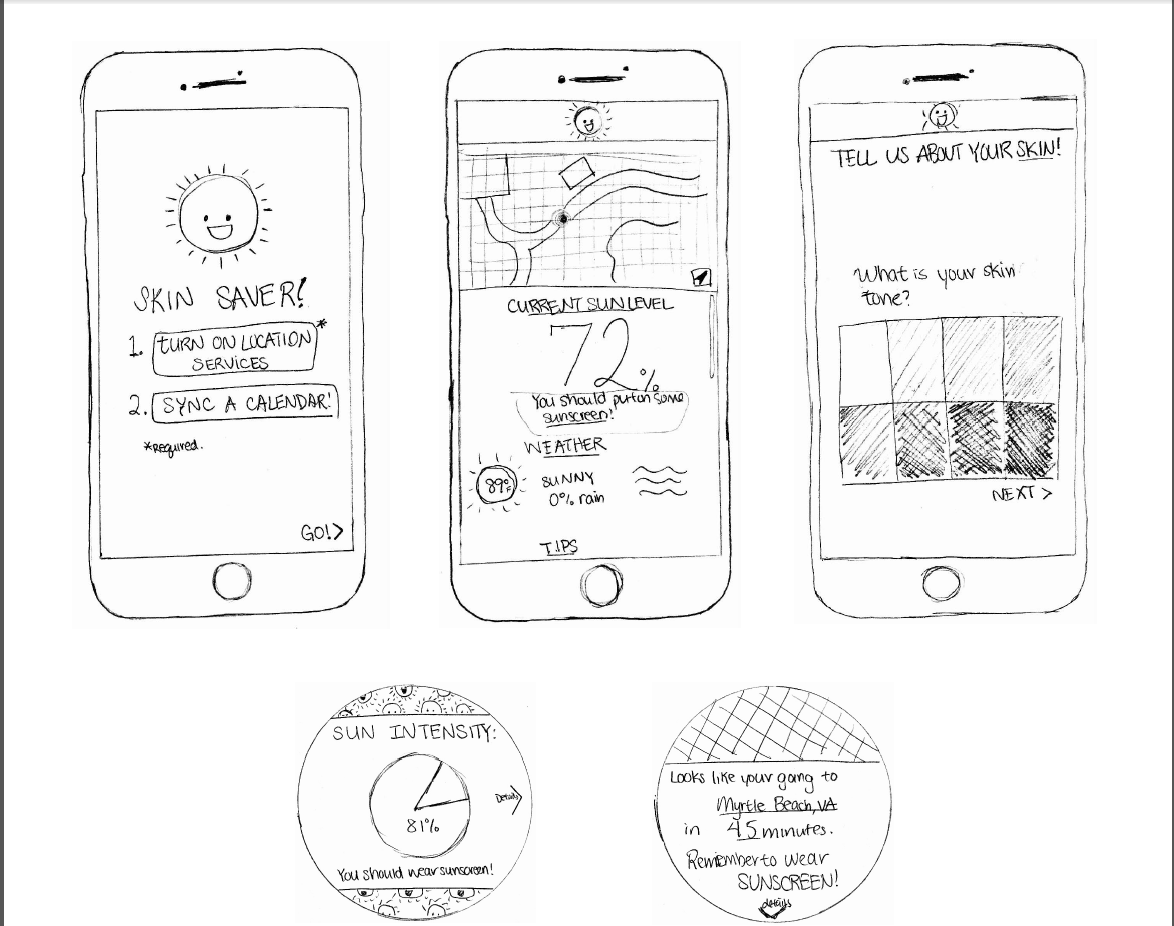 SKIN SAVER!
1. TURN ON LOCATION *
SERVICES
2. SYNC A CALENDAR!
*Required.
GO! >
CURRENT SUN LEVEL
72%
You should put on some
sunscreen!
WEATHER
89°F
SUNNY
0% rain
TIPS
TELL US ABOUT YOUR SKIN!
What is your skin
tone?
NEXT >
SUN INTENSITY:
81%
Details >
You should wear sunscreen!
Looks like your going to
Myrtle Beach, VA
in 45 minutes.
Remember to wear
SUNSCREEN!
details